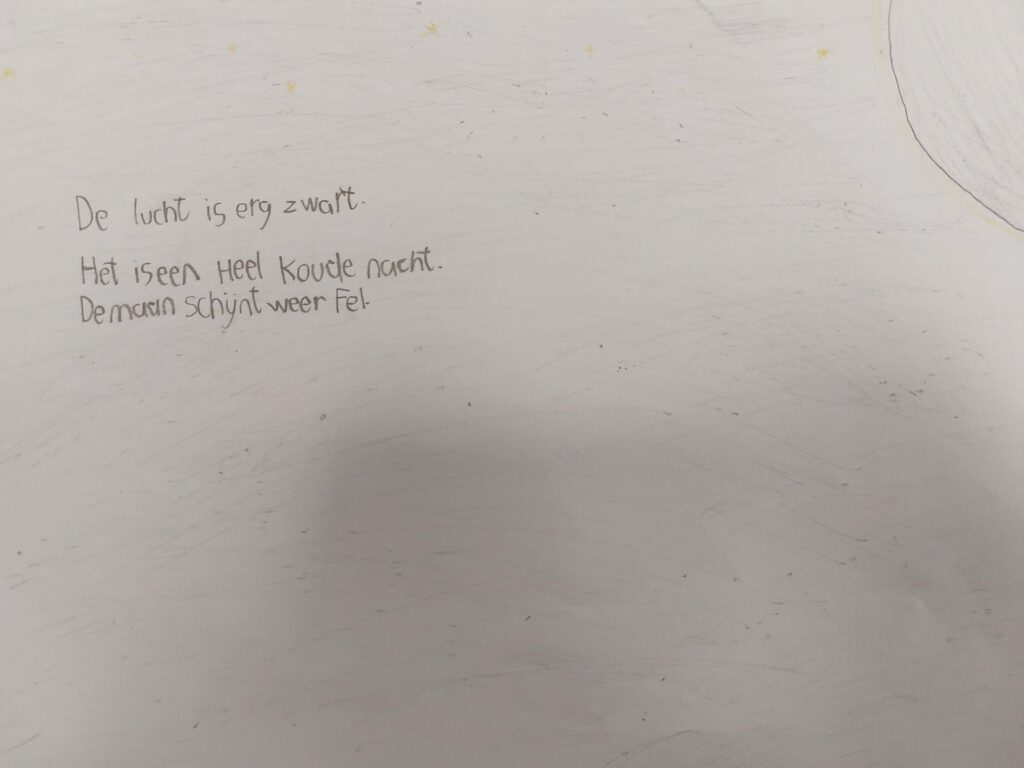 De lucht is erg zwart.
Het is een Heel koude nacht.
De maan schijnt weer Fel.